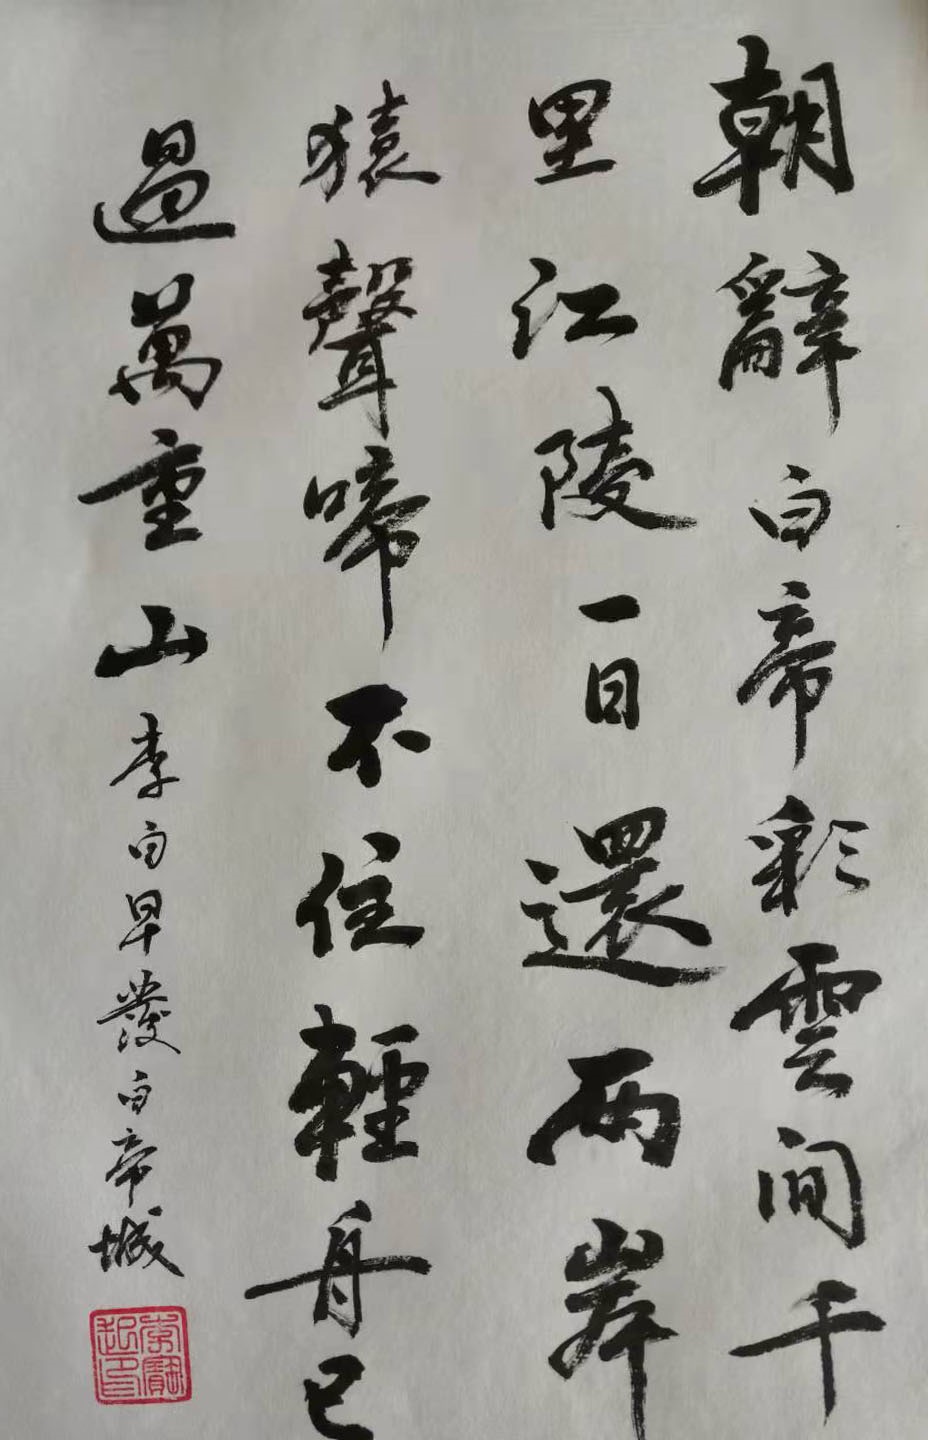 朝辭白帝彩雲間千
里江陵一日還兩岸
猿聲啼不住輕舟已
過萬重山
李白早發白帝城